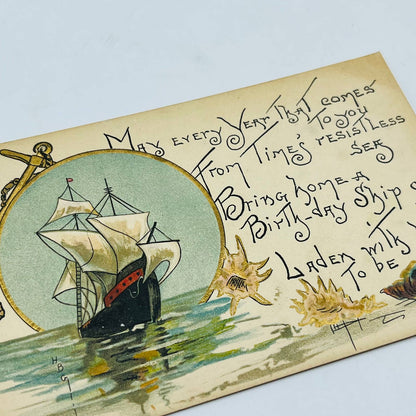 May every Year that comes
to you
From Time's resistless
sea
Bring home a
Birth-day Ship
Laden with
to be